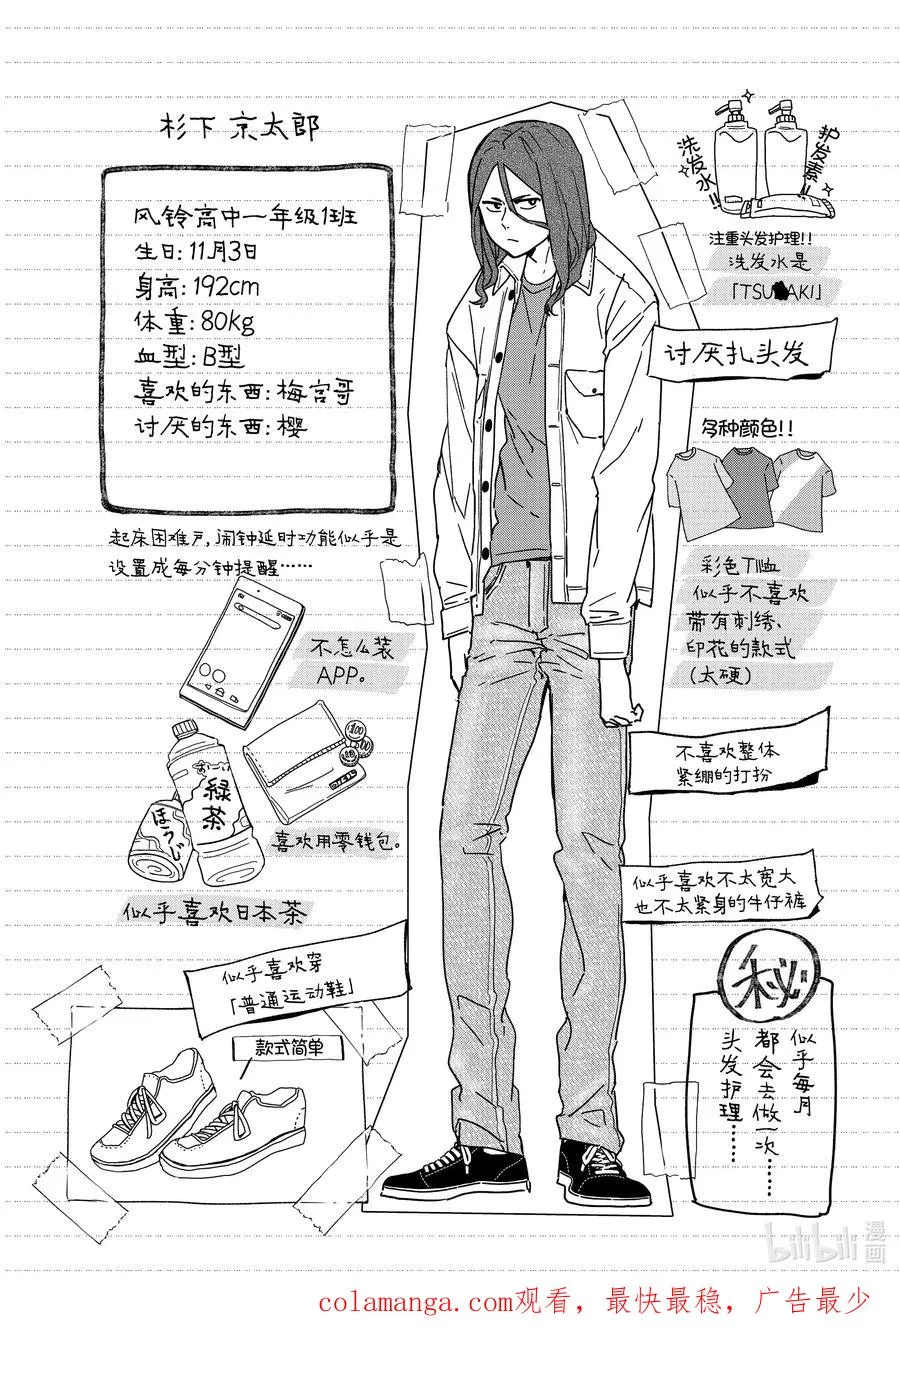 杉下 京太郎
风铃高中一年级1班
生日: 11月3日
身高: 192cm
体重: 80kg
血型: B型
喜欢的东西: 梅宫哥
讨厌的东西: 樱
起床困难户, 闹钟延时功能似乎是
设置成每分钟提醒……
不怎么装
APP。
お〜い
緑茶
ほうじ
100
100
喜欢用零钱包。
似乎喜欢日本茶
似乎喜欢穿
「普通运动鞋」
款式简单
洗发水!!
护发素!!
注重头发护理!!
洗发水是
「TSU AKI」
讨厌扎头发
多种颜色!!
彩色T恤
似乎不喜欢
带有刺绣、
印花的款式
(太硬)
不喜欢整体
紧绷的打扮
似乎喜欢不太宽大
也不太紧身的牛仔裤
秘
似乎每月
都会去做一次……
头发护理……
bilibili
漫画
colamanga.com观看，最快最稳，广告最少